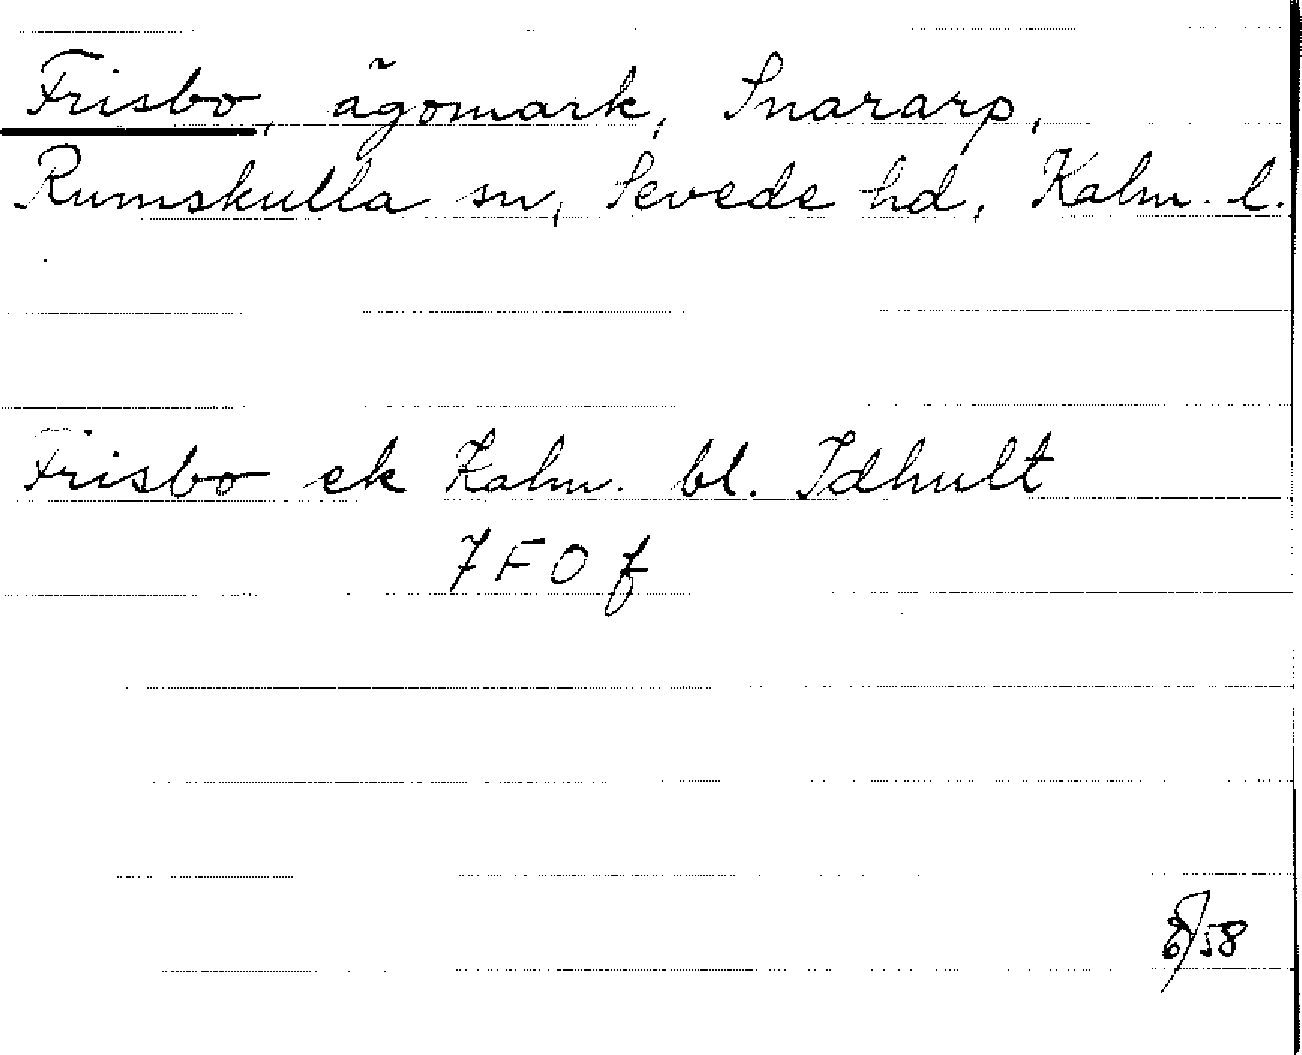 Frisbo, ägomark, Snararp,
Rumskulla sn, Sevede hd, Kalm. l.
Frisbo ek Kalm. bl. Idhult
7 F O f
8/58